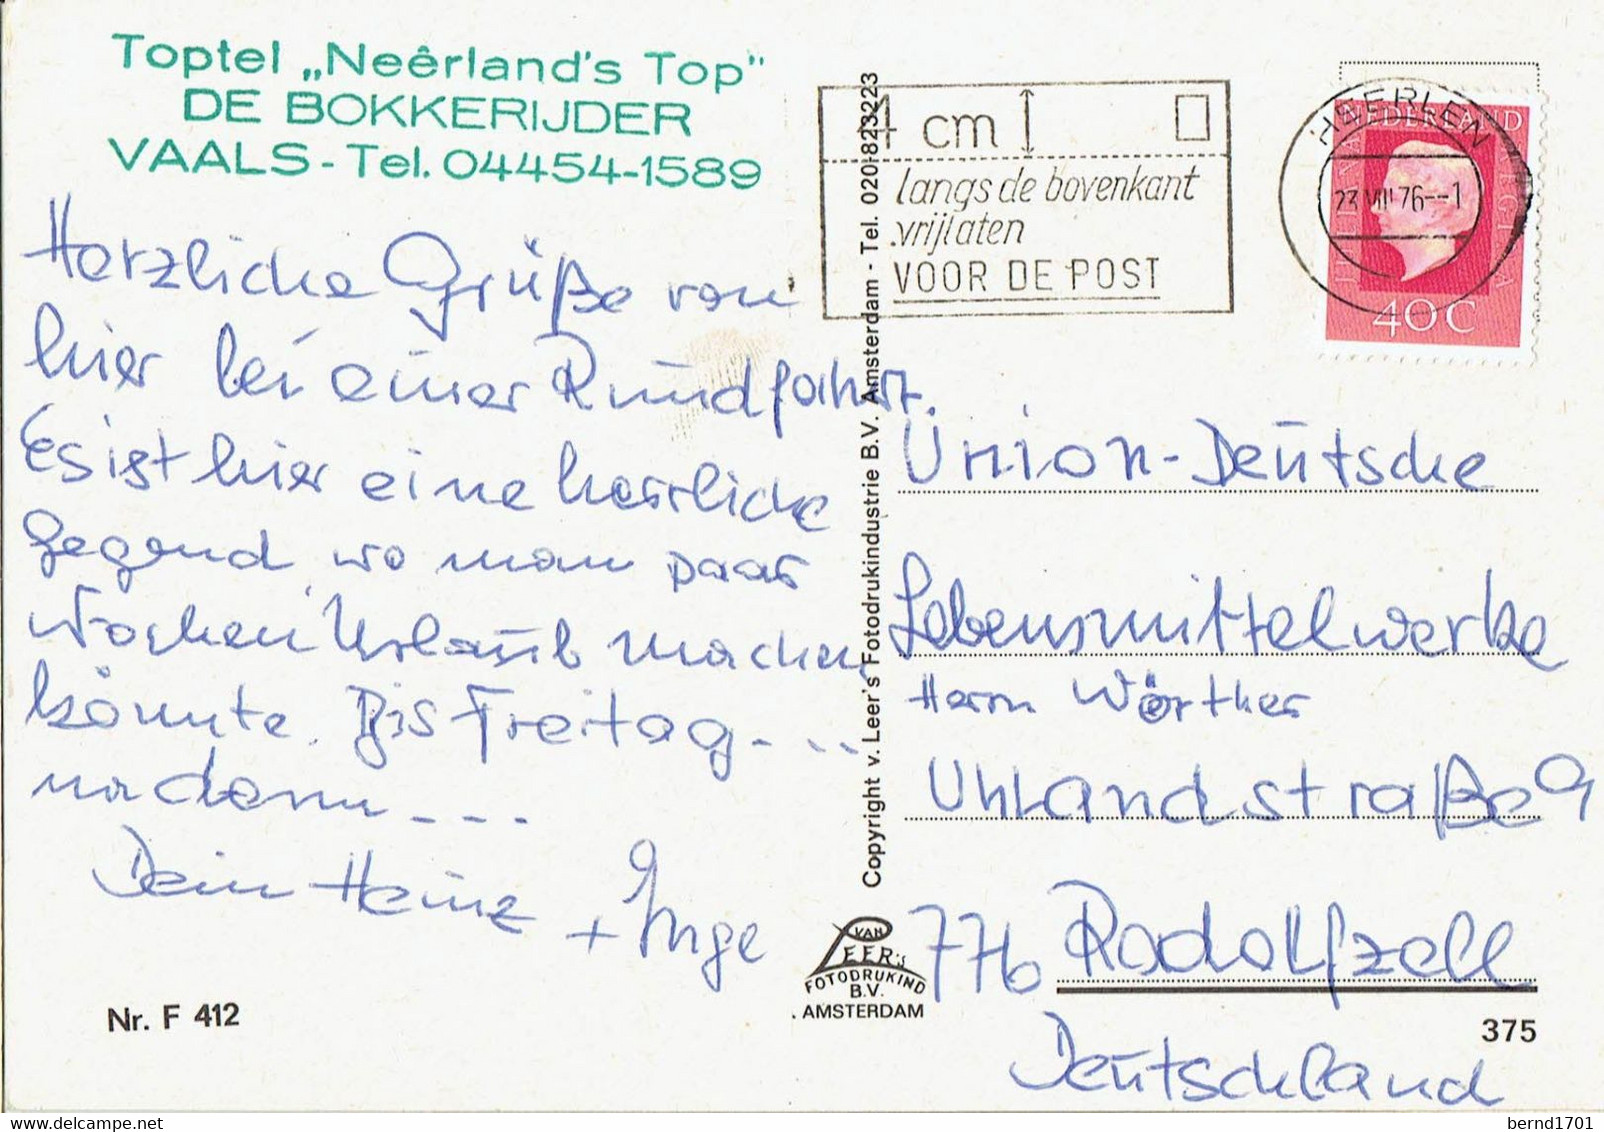 Toptel „Neêrland's Top"
DE BOKKERIJDER
VAALS - Tel. 04454-1589
Herzliche Grüße von
hier bei einer Rundfahrt.
Es ist hier eine herrliche
Gegend wo man paar
Wochen Urlaub machen
könnte. Bis Freitag - . . .
na denn - - -
Dein Heinz
+ Inge
Nr. F 412
4 cm
langs de bovenkant
vrijlaten
VOOR DE POST
HEERLEN
23 VIII 76 -- 1
NEDERLAND
JULIANA REGINA
40 C
Copyright v. Leer's Fotodrukindustrie B.V. Amsterdam - Tel. 020-823223
Union-Deutsche
Lebensmittelwerke
Herrn Wörther
Uhlandstraße 9
776 Radolfzell
Deutschland
VAN
LEER'S
FOTODRUKIND
B.V.
AMSTERDAM
375
bernd1701